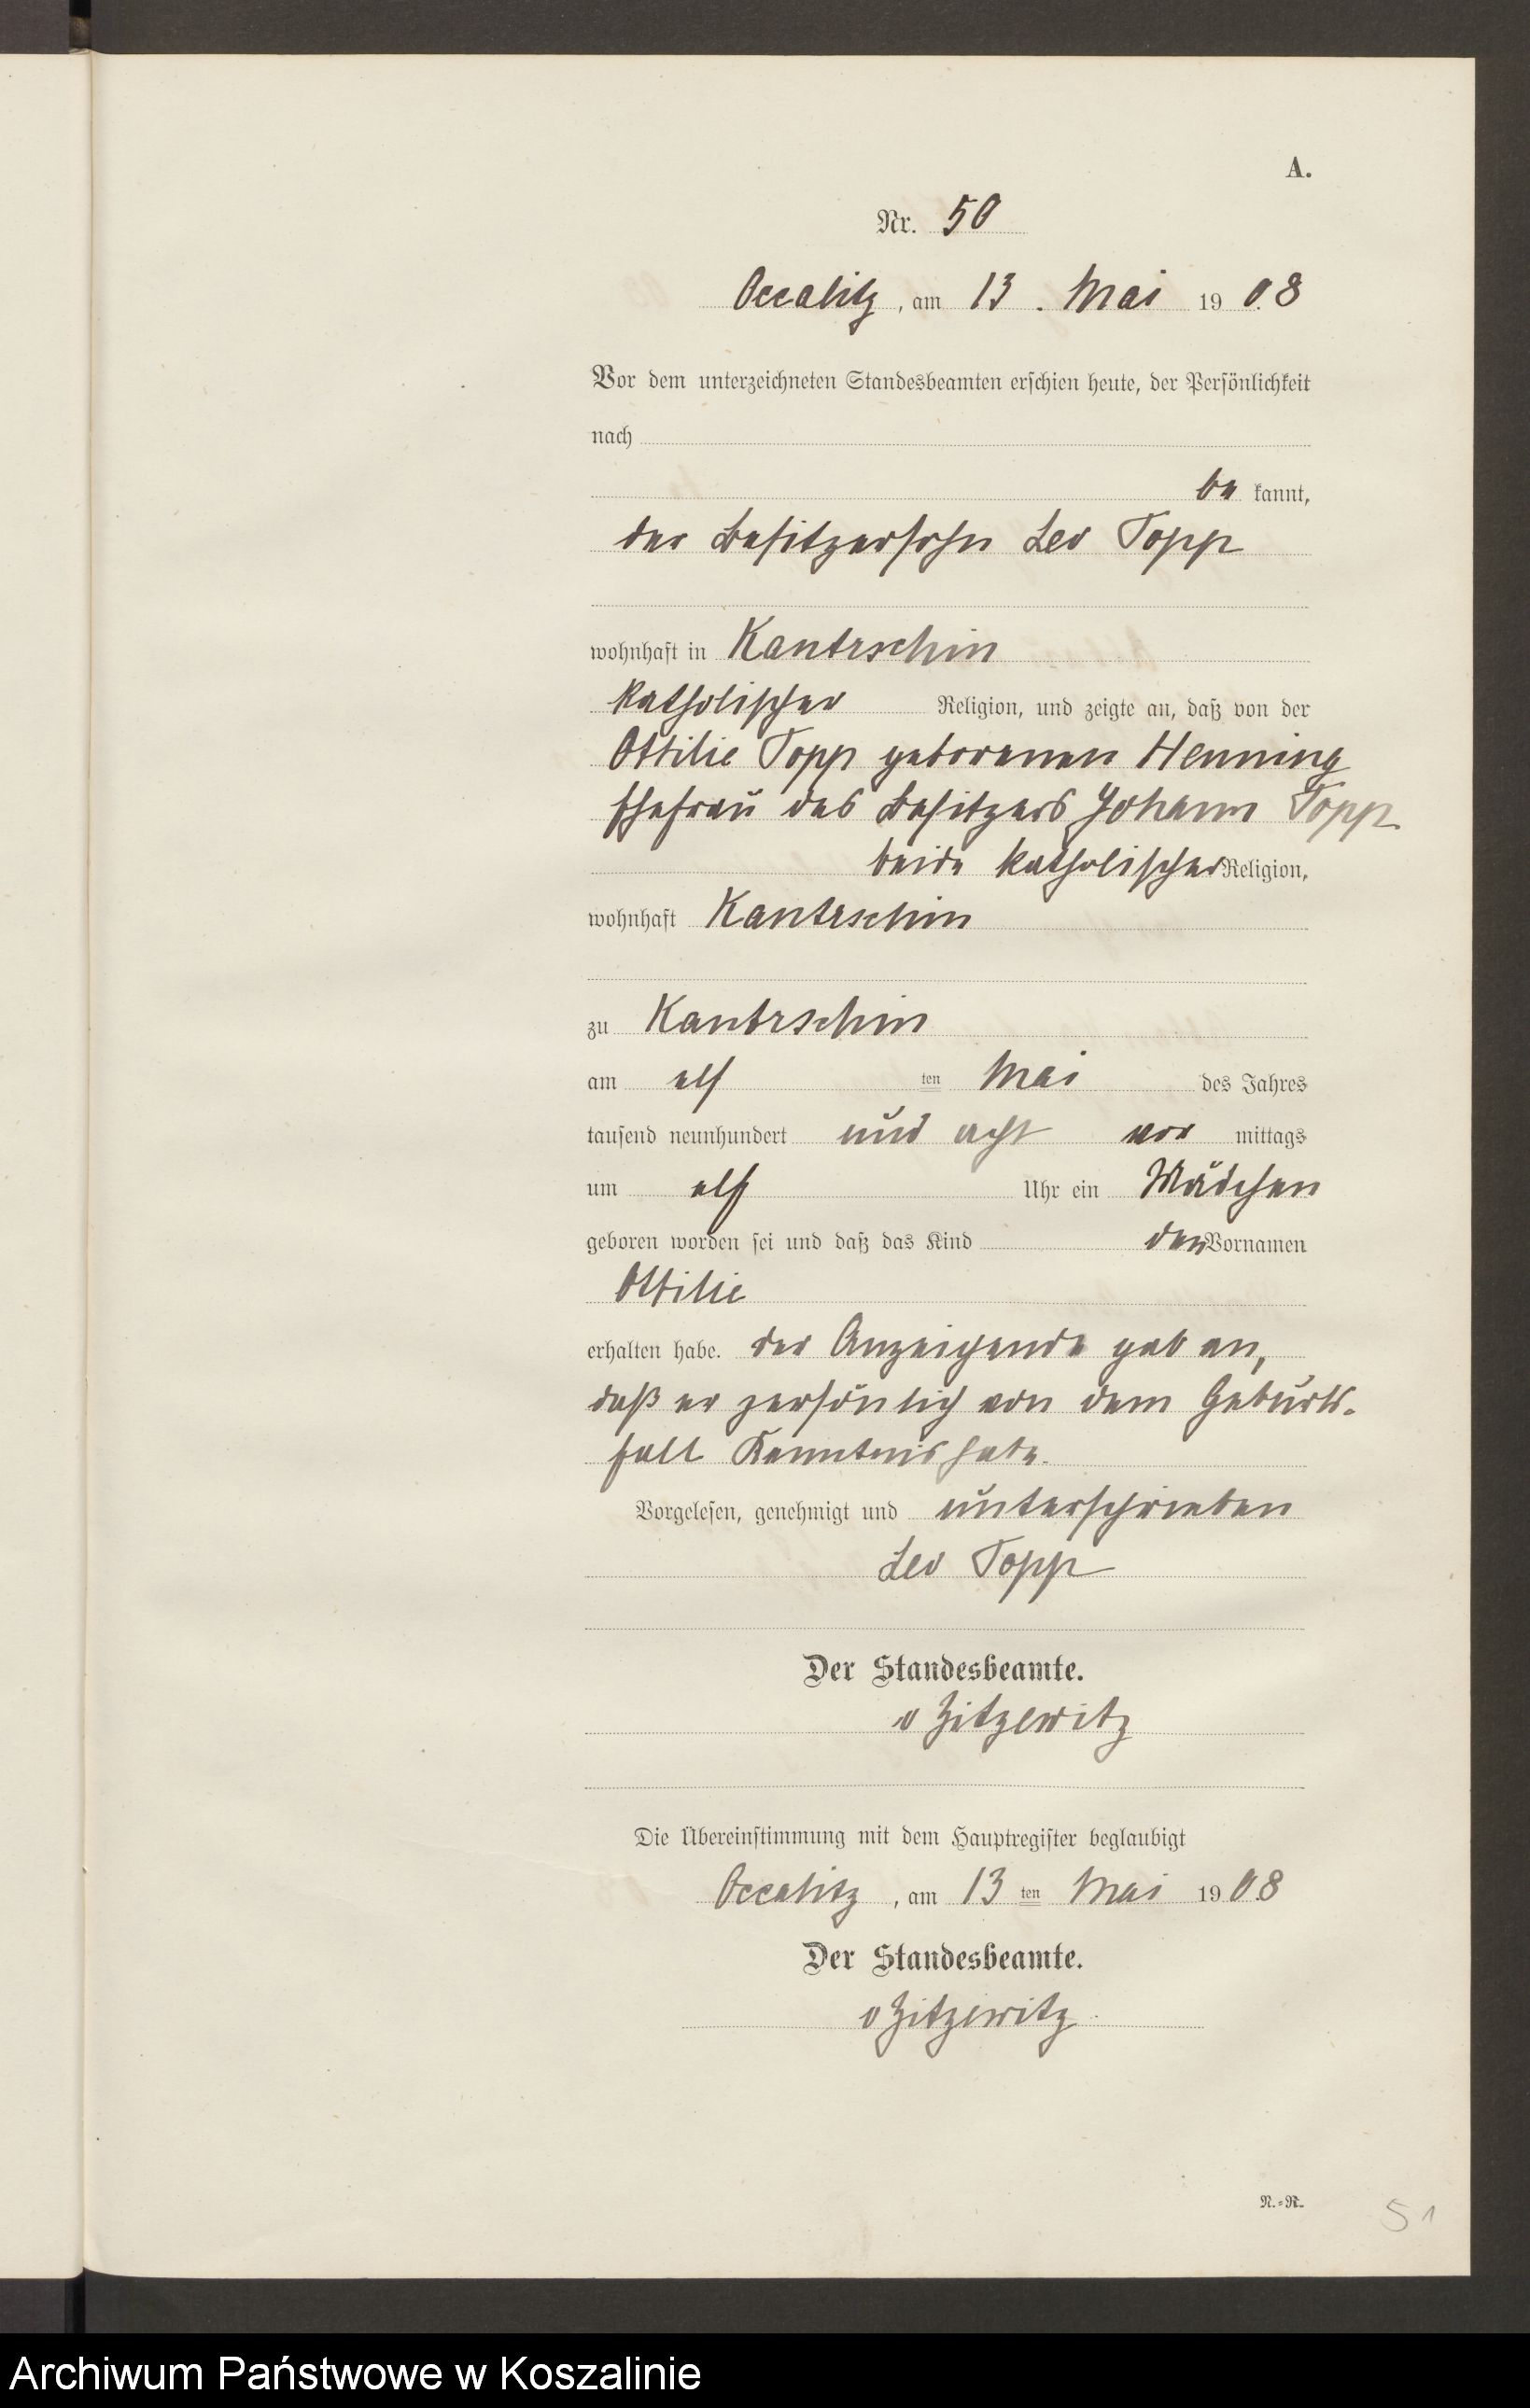 A.
Nr. 50
Occalitz, am 13. Mai 1908
Vor dem unterzeichneten Standesbeamten erschien heute, der Persönlichkeit
nach
be kannt,
der Besitzersohn Leo Topp
wohnhaft in Kantrschin
katholischer Religion, und zeigte an, daß von der
Ottilie Topp geborenen Henning
Ehefrau des Besitzers Johann Topp
beide katholischer Religion,
wohnhaft Kantrschin
zu Kantrschin
am elf ten Mai des Jahres
tausend neunhundert und acht vor mittags
um elf Uhr ein Mädchen
geboren worden sei und daß das Kind den Vornamen
Ottilie
erhalten habe. der Anzeigende gab an,
daß er persönlich von dem Geburts-
fall Kenntnis habe.
Vorgelesen, genehmigt und unterschrieben
Leo Topp
Der Standesbeamte.
v Zitzewitz
Die Übereinstimmung mit dem Hauptregister beglaubigt
Occalitz, am 13 ten Mai 1908
Der Standesbeamte.
v Zitzewitz
N.=R.
51
Archiwum Państwowe w Koszalinie